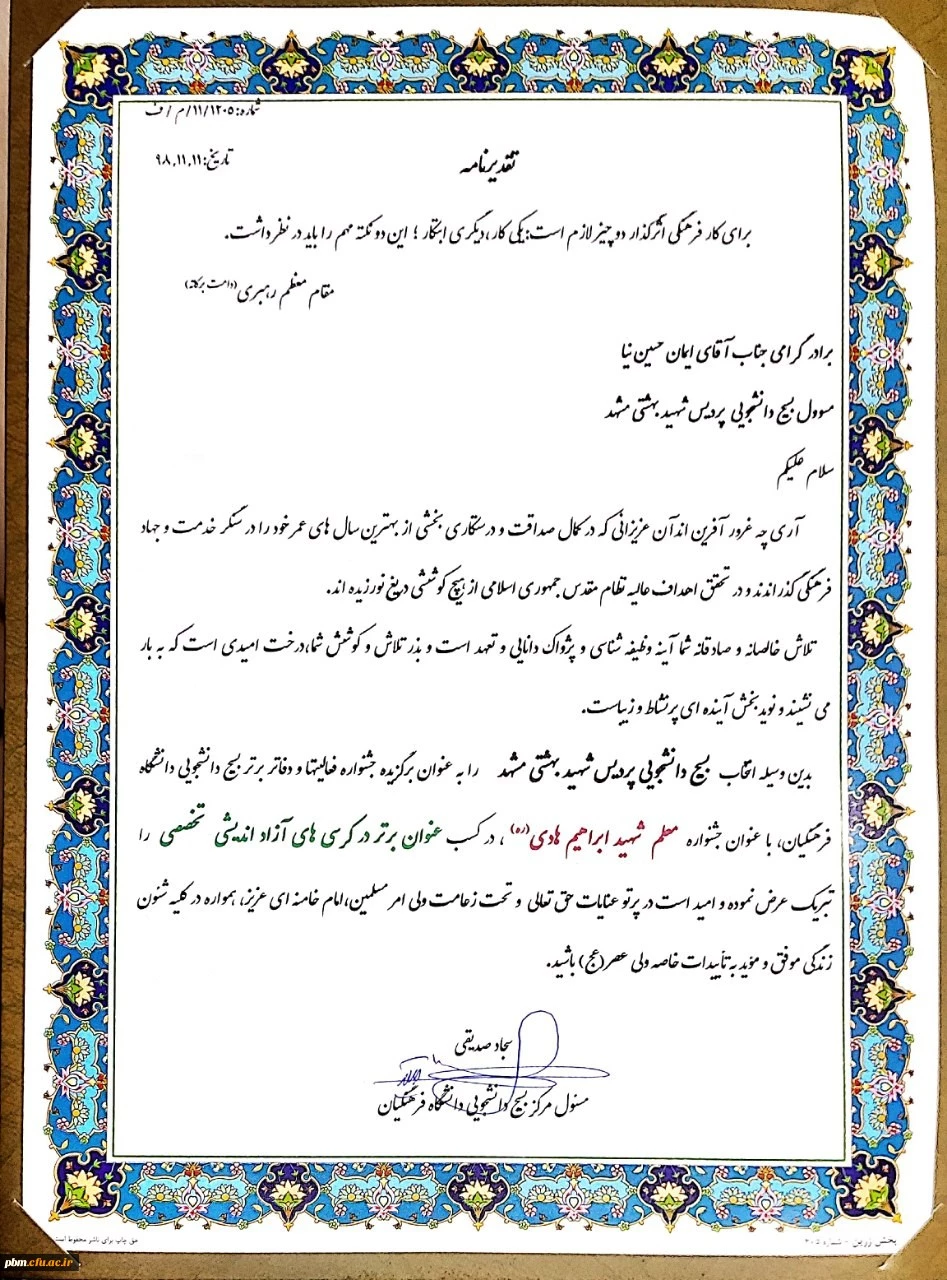 شماره: ۱۱/۱۲۰۵/م/ف
تاریخ: ۹۸.۱۱.۱۱
تقدیرنامه
برای کار فرهنگی اثرگذار دو چیز لازم است: یکی کار، دیگری ابتکار ؛ این دو نکته مهم را باید در نظر داشت.
مقام معظم رهبری (دامت برکاته)
برادر گرامی جناب آقای ایمان حسین نیا
مسوول بسیج دانشجویی پردیس شهید بهشتی مشهد
سلام علیکم
آری چه غرور آفرین اند آن عزیزانی که در کمال صداقت و درستکاری بخشی از بهترین سال های عمر خود را در سنگر خدمت و جهاد
فرهنگی گذراندند و در تحقق اهداف عالیه نظام مقدس جمهوری اسلامی از هیچ کوششی دریغ نورزیده اند.
تلاش خالصانه و صادقانه شما آینه وظیفه شناسی و پژواک دانایی و تعهد است و بذر تلاش و کوشش شما، درخت امیدی است که به بار
می نشیند و نوید بخش آینده ای پر نشاط و زیباست.
بدین وسیله انتخاب بسیج دانشجویی پردیس شهید بهشتی مشهد را به عنوان برگزیده جشنواره فعالیتها و دفاتر برتر بسیج دانشجویی دانشگاه
فرهنگیان، با عنوان جشنواره معلم شهید ابراهیم هادی (ره) ، در کسب عنوان برتر در کرسی های آزاد اندیشی تخصصی را
تبریک عرض نموده و امید است در پرتو عنایات حق تعالی و تحت زعامت ولی امر مسلمین، امام خامنه ای عزیز، همواره در کلیه شئون
زندگی موفق و مؤید به تأییدات خاصه ولی عصر (عج) باشید.
سجاد صدیقی
مسئول مرکز بسیج دانشجویی دانشگاه فرهنگیان
پخش زرین - شماره
حق چاپ برای ناشر محفوظ است
pbm.cfu.ac.ir